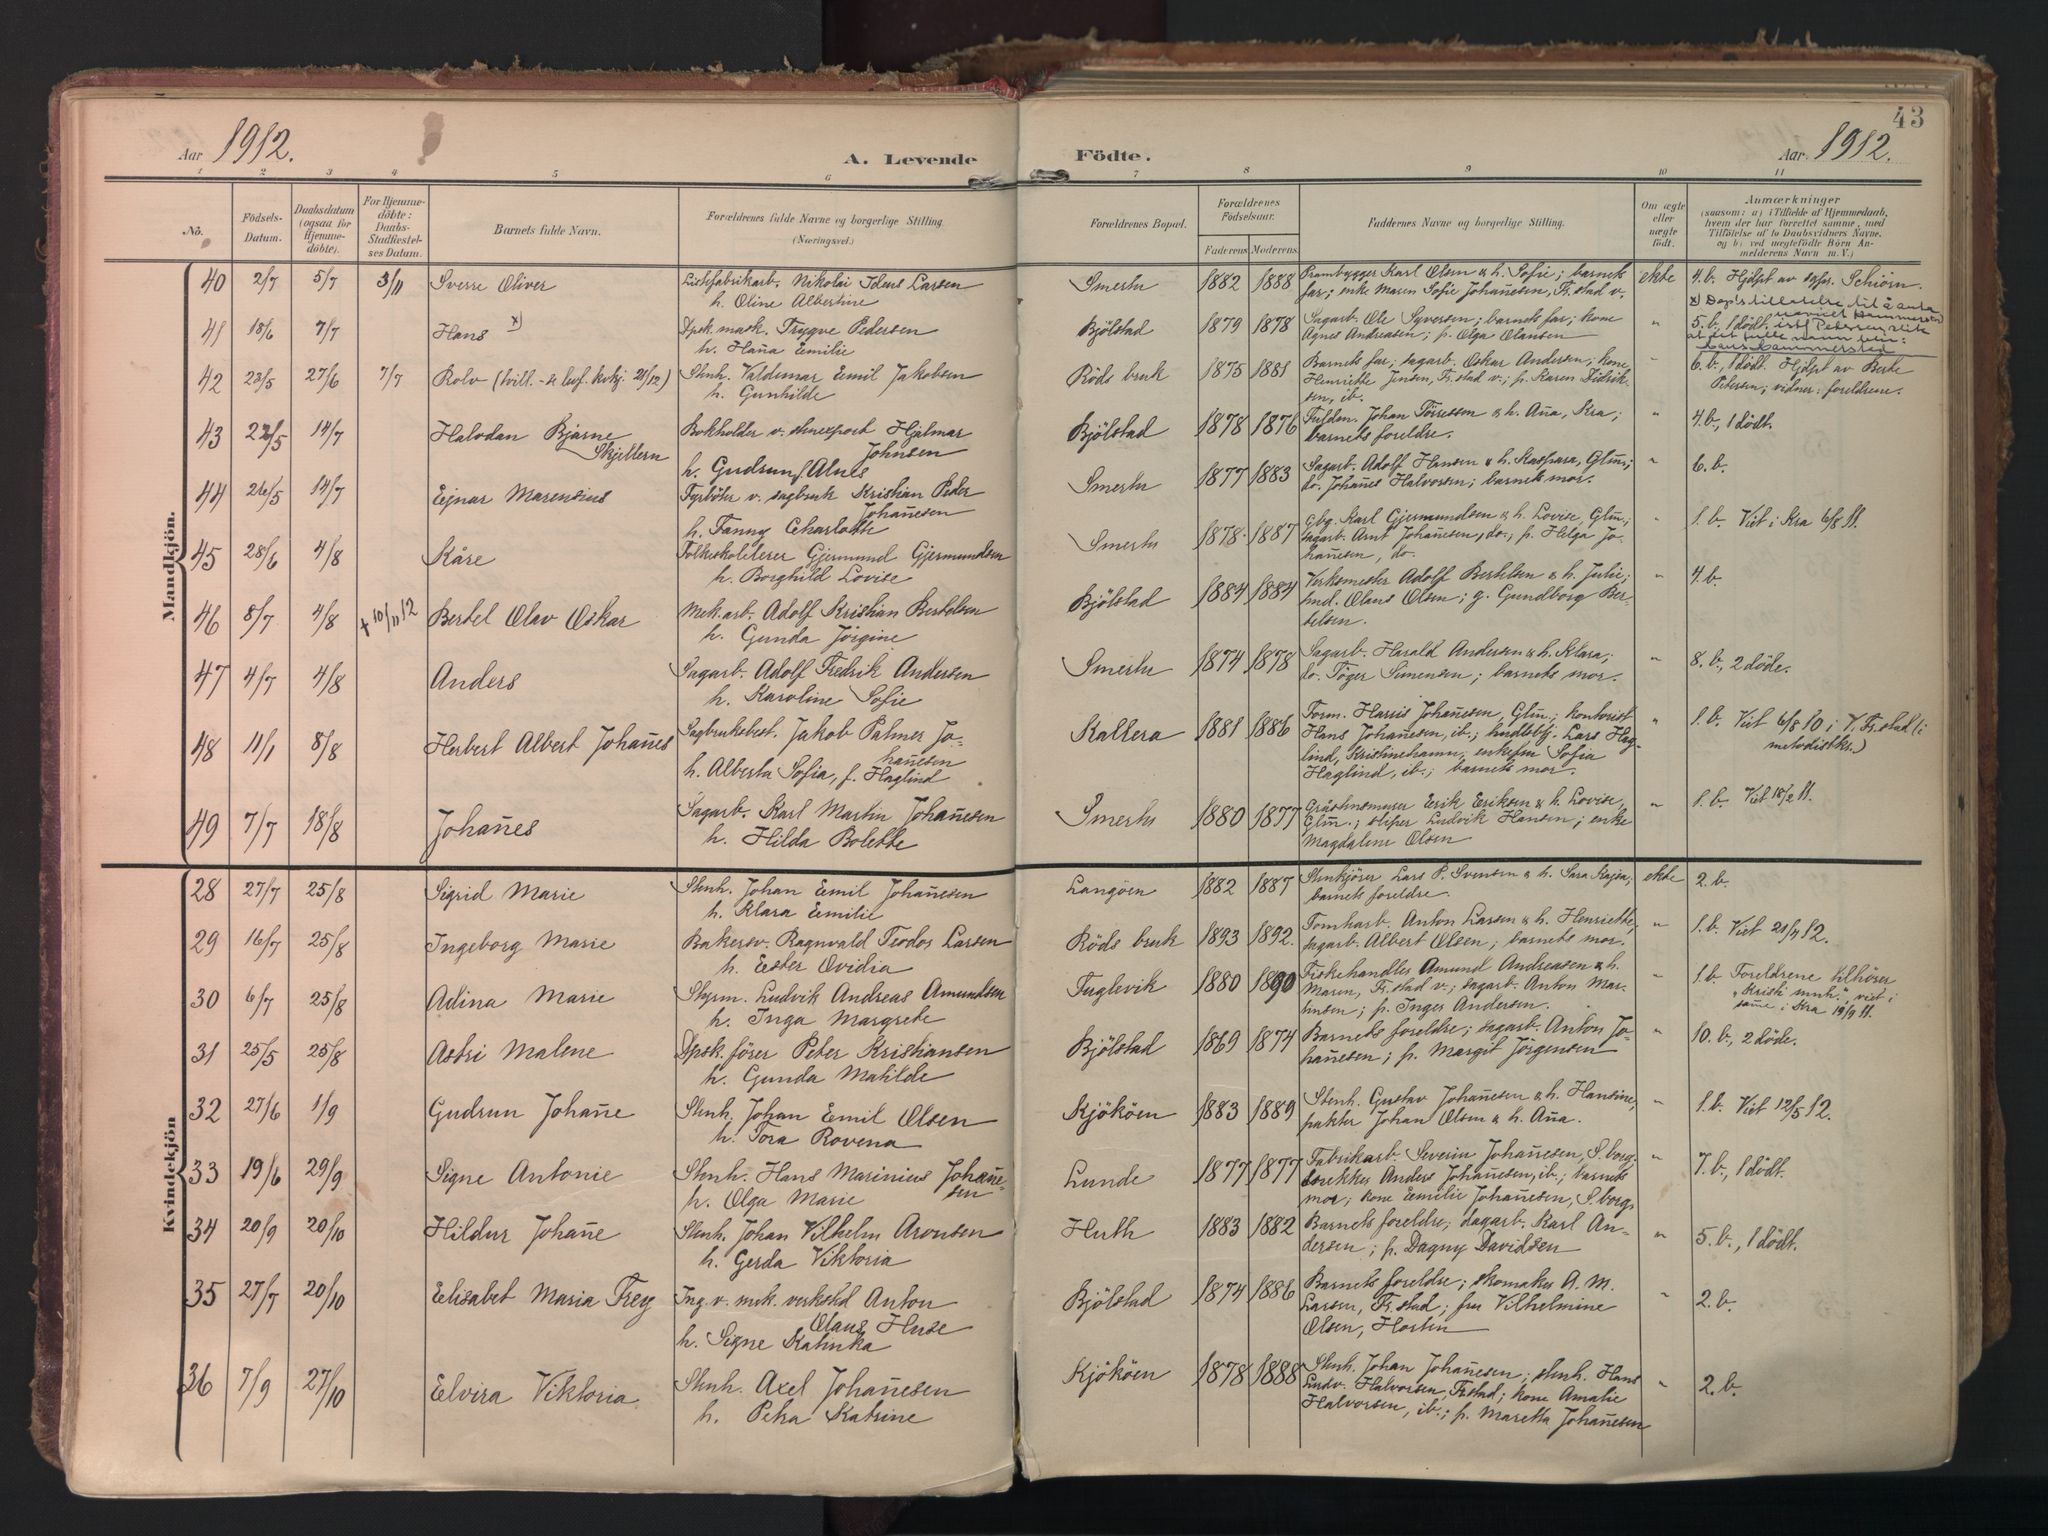 43
Aar 1912.
A. Levende
Födte.
Aar 1912.
1 2 3 4 5 6 7 8 9 10 11
No.
Födsels-Datum.
Daabsdatum (ogsaa for Hjemmedöbte).
For Hjemmedöbte: Daabs-Stadfæstelses Datum.
Barnets fulde Navn.
Forældrenes fulde Navne og borgerlige Stilling.
(Næringsvei.)
Forældrenes Bopæl.
Forældrenes Födselsaar.
Faderens Moderens
Faddernes Navne og borgerlige Stilling.
Om ægte eller uægte födt.
Anmærkninger
(saasom: a) i Tilfælde af Hjemmedaab, hvem der har forrettet samme, med Tilföielse af to Daabsvidners Navne, og b) ved uægtefödte Börn Anmelderens Navn m. V.)
Mandkjön.
40 2/7 5/7 3/11 Sverre Oliver
Nikolai Larsen
h. Oline Albertine
Smertu 1882 1888
Prambygger Karl Olsen & h. Sofie; barnets
far; enke Maren Sofie Johañesen, Fr.stad v.
ekte
4. b. Hjelpt av Schiörn.
41 18/6 7/7 Hans x)
Dpsk. mask. Trygve Pedersen
h. Haña Emilie
Bjölstad 1879 1878
Sagarb. Ole Syversen; barnets far; kone
Agnes Andreasen; p. Olga Olausen
"
5. b. 1 dödt.
42 23/5 27/6 7/7 Rolv
Stenh. Valdemar Emil Jakobsen
h. Gunhilde
Röds bruk 1875 1881
Barnets far; sagarb. Oskar Andersen; kone
Henriette Jensen, Fr.stad v.; p. Karen Didrik-
sen, ib.
"
6. b., 1 dödt. Hjelpt av Berte
Petersen; vidner: foreldrene.
43 22/5 14/7 Halvdan Bjarne
Skjellern
Bokholder v. stenexport Hjalmar
Johnsen
h. Gudrun
Bjölstad 1878 1876
Johan Törresen & h. Aña, Kra;
barnets foreldre.
"
4. b., 1 dödt.
44 26/5 14/7 Ejnar Marensius
Fyrböter v. sagbruk Kristian Peder
Johañesen
h. Fanny Charlotte
Smertu 1877 1883
Sagarb. Adolf Hansen & h. Kaspara, Glm;
do. Johañes Halvorsen; barnets mor.
"
6. b.
45 28/6 4/8 Kåre
Folkeskolelærer Gjermund Gjermundsen
h. Borghild Lovise
Smertu 1878 1887
Gbg. Karl Gjermundsen & h. Lovise, Glm;
sagarb. Arnt Johañesen, do.; p. Helga Jo-
hañesen, do.
"
1. b. Viet i Kra 6/8 11.
46 8/7 4/8 + 10/11 12 Bertel Olav Oskar
Mek. arb. Adolf Kristian Bertelsen
h. Gunda Jörgine
Bjölstad 1884 1884
Verksmester Adolf Bertelsen & h. Julie;
smed. Olaus Olsen; g. Gundborg Ber-
telsen.
"
4. b.
47 4/7 4/8 Anders
Sagarb. Adolf Fredrik Andersen
h. Karoline Sofie
Smertu 1874 1878
Sagarb. Harald Andersen & h. Klara;
do. Töger Simensen; barnets mor.
"
8. b., 2 döde.
48 11/1 8/8 Herbert Albert Johañes
Sagbruksbest. Jakob Palmer Jo-
hañesen
h. Alberta Sofia, f. Haglind
Kallera 1881 1886
Form. Harris Johañesen, Glm; kontorist
Hans Johañesen, ib.; Lars Hag-
lind, Kristinehamn, Sofia
Haglind, ib.; barnets mor.
"
1. b. Viet 6/8 10 i V. Fr.stad (i
metodistks.)
49 7/7 18/8 Johañes
Sagarb. Karl Martin Johañesen
h. Hilda Bolette
Smertu 1880 1877
Eerik Eeriksen & h. Lovise,
Glm.; sliper Ludvik Hansen; enke
Magdalene Olsen
"
1. b. Viet 18/2 11.
Kvindekjön
28 27/7 25/8 Sigrid Marie
Stenh. Johan Emil Johañesen
h. Klara Eemilie
Langöen 1882 1887
Stenkjörer Lars P. Svensen & h. Sara Kajsa;
barnets foreldre.
ekte
2. b.
29 16/7 25/8 Ingeborg Marie
Bakersv. Ragnvald Teodor Larsen
h. Eester Ovidia
Röds bruk 1893 1892.
Tomtearb. Anton Larsen & h. Henriette;
sagarb. Albert Olsen; barnets mor.
"
1. b. Viet 21/4 12.
30 6/7 25/8 Adina Marie
Styrm. Ludvik Andreas Amundsen
h. Inga Margrete
Fuglevik 1880 1890
Fiskehandler Amund Andreasen & h.
Maren, Fr.stad v.; sagarb. Anton Mar-
tinsen; p. Inger Andersen.
"
1. b. Foreldrene tilhörer
"Kristi mnh.", viet i
same i Kra 19/9 11.
31 25/5 25/8 Astri Malene
Dpsk. förer Peter Kristiansen
h. Gunda Matilde
Bjölstad 1869 1874
Barnets foreldre; sagarb. Anton Jo-
hañesen; p. Margit Jörgensen
"
10. b., 2 döde.
32 27/6 1/9 Gudrun Johañe
Stenh. Johan Emil Olsen
h. Tora Rovena
Kjököen 1883 1889
Stenh. Gustav Johañesen & h. Hansine;
pakter Johan Olsen & h. Aña.
"
1. b. Viet 12/5 12.
33 19/6 29/9 Signe Antonie
Stenh. Hans Marinius Johañe-
sen
h. Olga Marie
Lunde 1877 1877
Fabrikarb. Severin Johañesen, S.borg;
Anders Johañesen, ib.; barnets
mor; kone Eemilie Johañesen, S.borg.
"
7. b., 1 dödt.
34 20/9 20/10 Hildur Johañe
Stenh. Johan Vilhelm Aronsen
h. Gerda Viktoria
Huth 1883 1882
Barnets foreldre; dagarb. Karl An-
dersen; p. Dagny Davidsen
"
5. b., 1 dödt.
35 27/7 20/10 Elisabet Maria Frey
Ing. v. mek. verksted Anton
Olaus Huse
h. Signe Katinka
Bjölstad 1874 1886
Barnets foreldre; skomaker A. M.
Larsen, Fr.stad; fru Vilhelmine
Olsen, Horten
"
2. b.
36 7/9 27/10 Elvira Viktoria
Stenh. Axel Johañesen
h. Petra Katrine
Kjököen 1878 1888
Stenh. Johan Johañesen; stenh. Hans
Ludv. Halvorsen, Fr.stad; kone Amalie
Halvorsen, ib.; p. Maretta Johañesen
"
2. b.